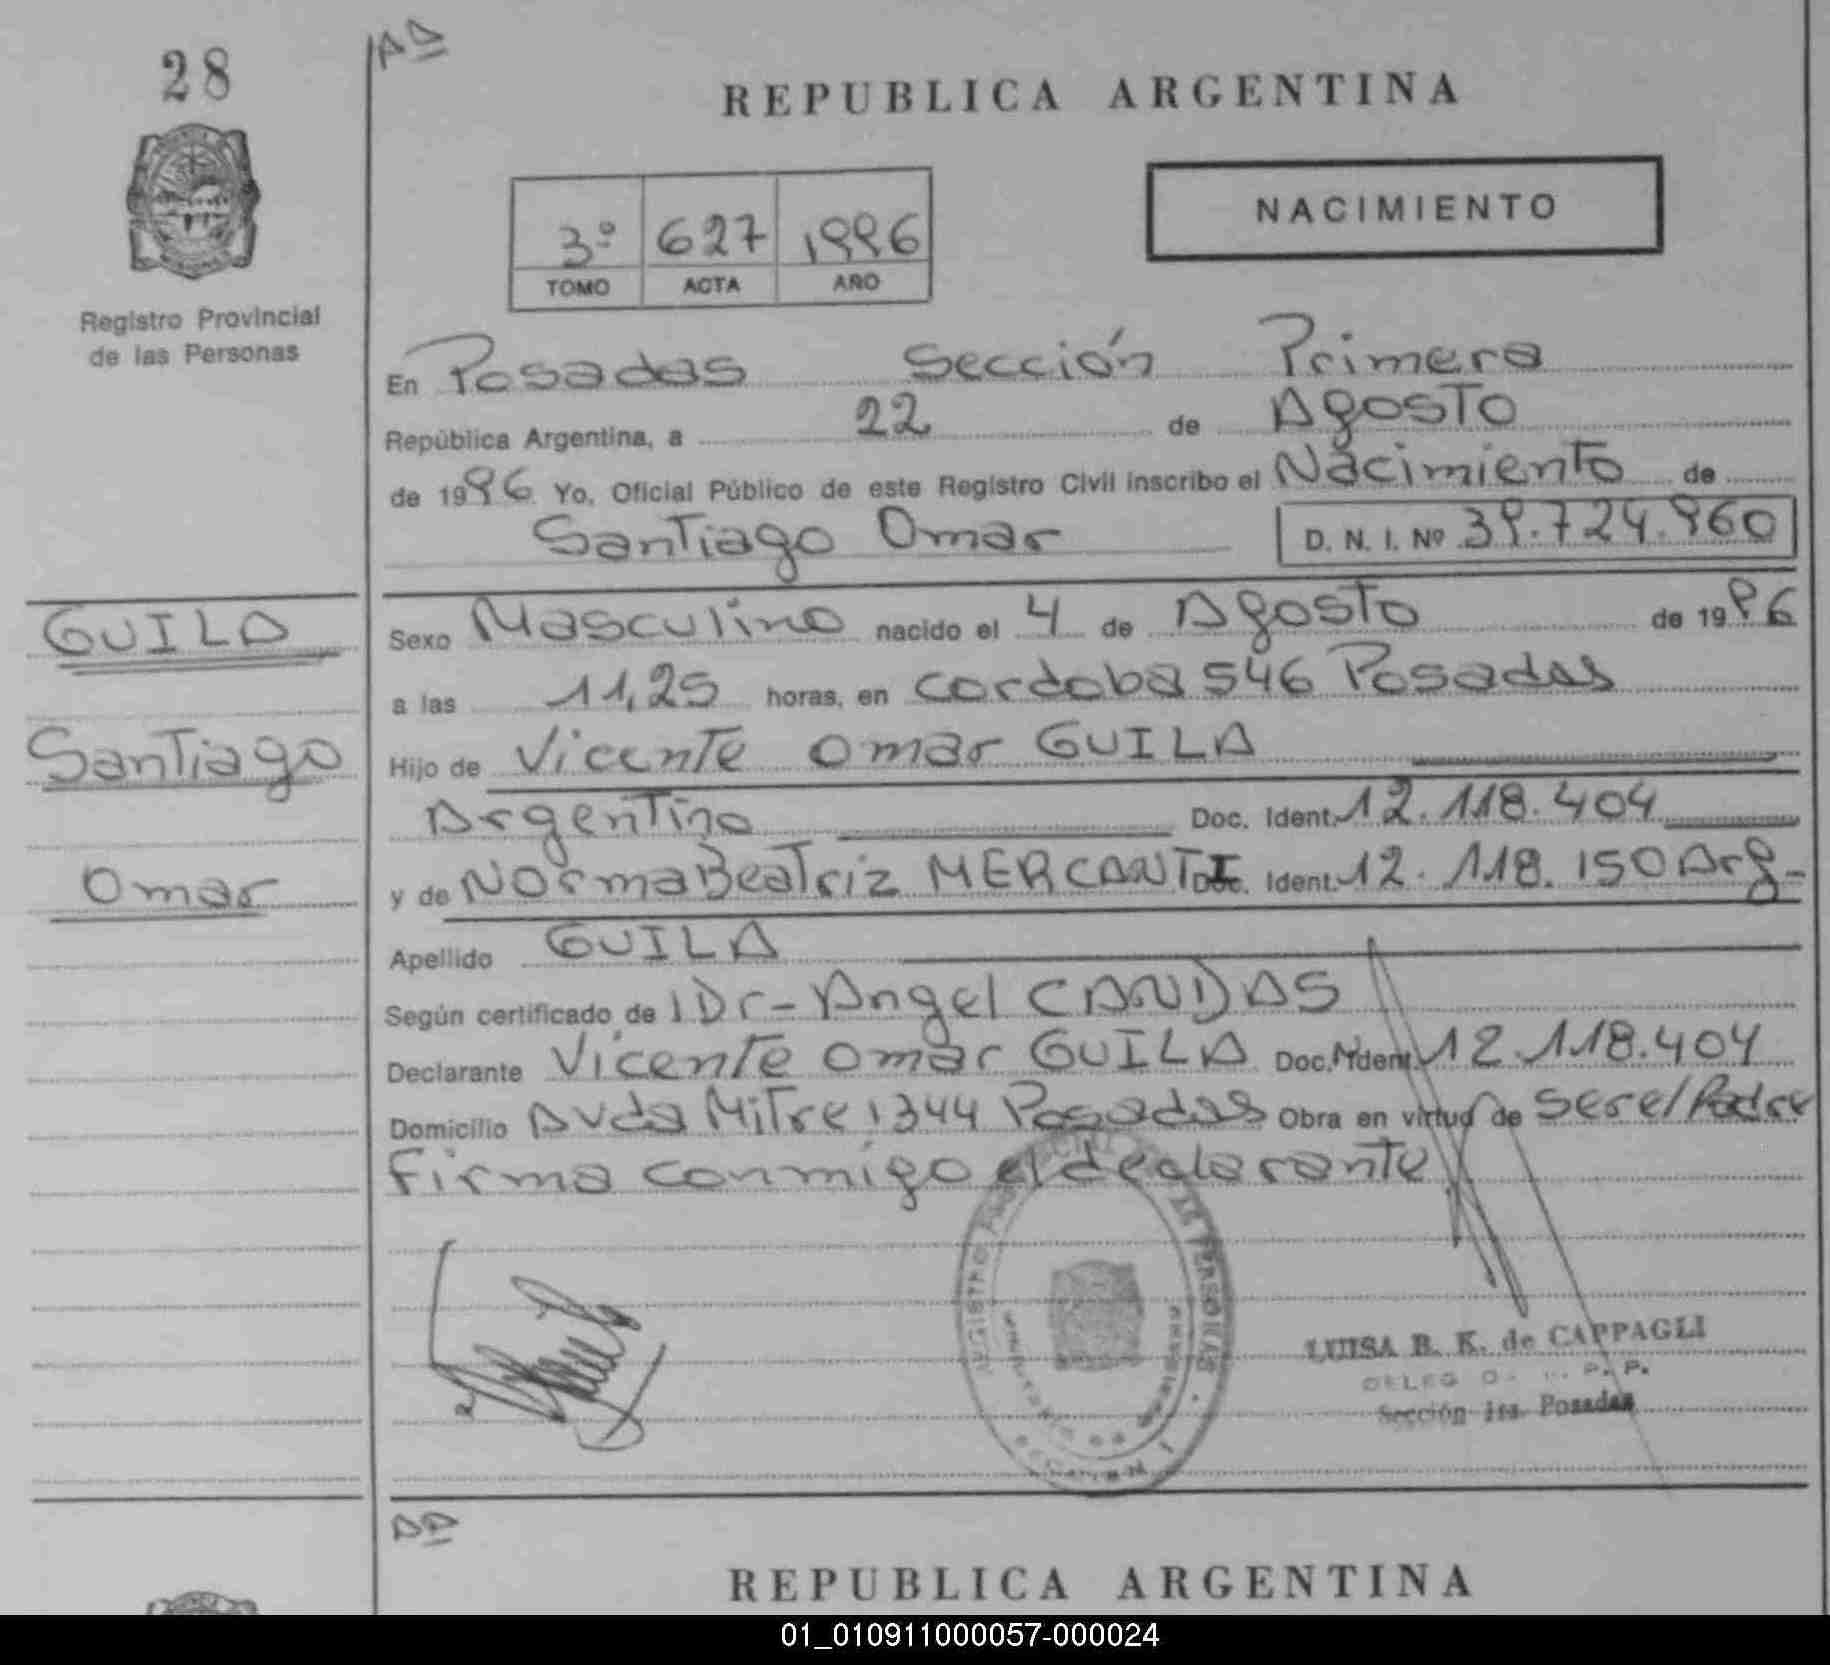 28
AD
REPUBLICA ARGENTINA
3º 627 1996
TOMO ACTA AÑO
NACIMIENTO
Registro Provincial
de las Personas
En Posadas Sección Primera
República Argentina, a 22 de Agosto
de 1996 Yo, Oficial Público de este Registro Civil inscribo el Nacimiento de
Santiago Omar D. N. I. Nº 39.724.960
GUILA
Santiago
Omar
Sexo Masculino nacido el 4 de Agosto de 1996
a las 11,25 horas, en cordoba 546 Posadas
Hijo de Vicente Omar GUILA
Argentino Doc. Ident. 12.118.404
y de Norma Beatriz MERCANTI Doc. Ident. 12.118.150 Arg-
Apellido GUILA
Según certificado de Dr- Angel CANDAS
Declarante Vicente Omar GUILA Doc. Ident. 12.118.404
Domicilio Avda Mitre 1344 Posadas Obra en virtud de ser el Padre
Firma conmigo el declarante
REGISTRO DE LAS PERSONAS
LUISA B. K. de CAPPAGLI
Sección 1ra. Posadas
AD
REPUBLICA ARGENTINA
01_010911000057-000024